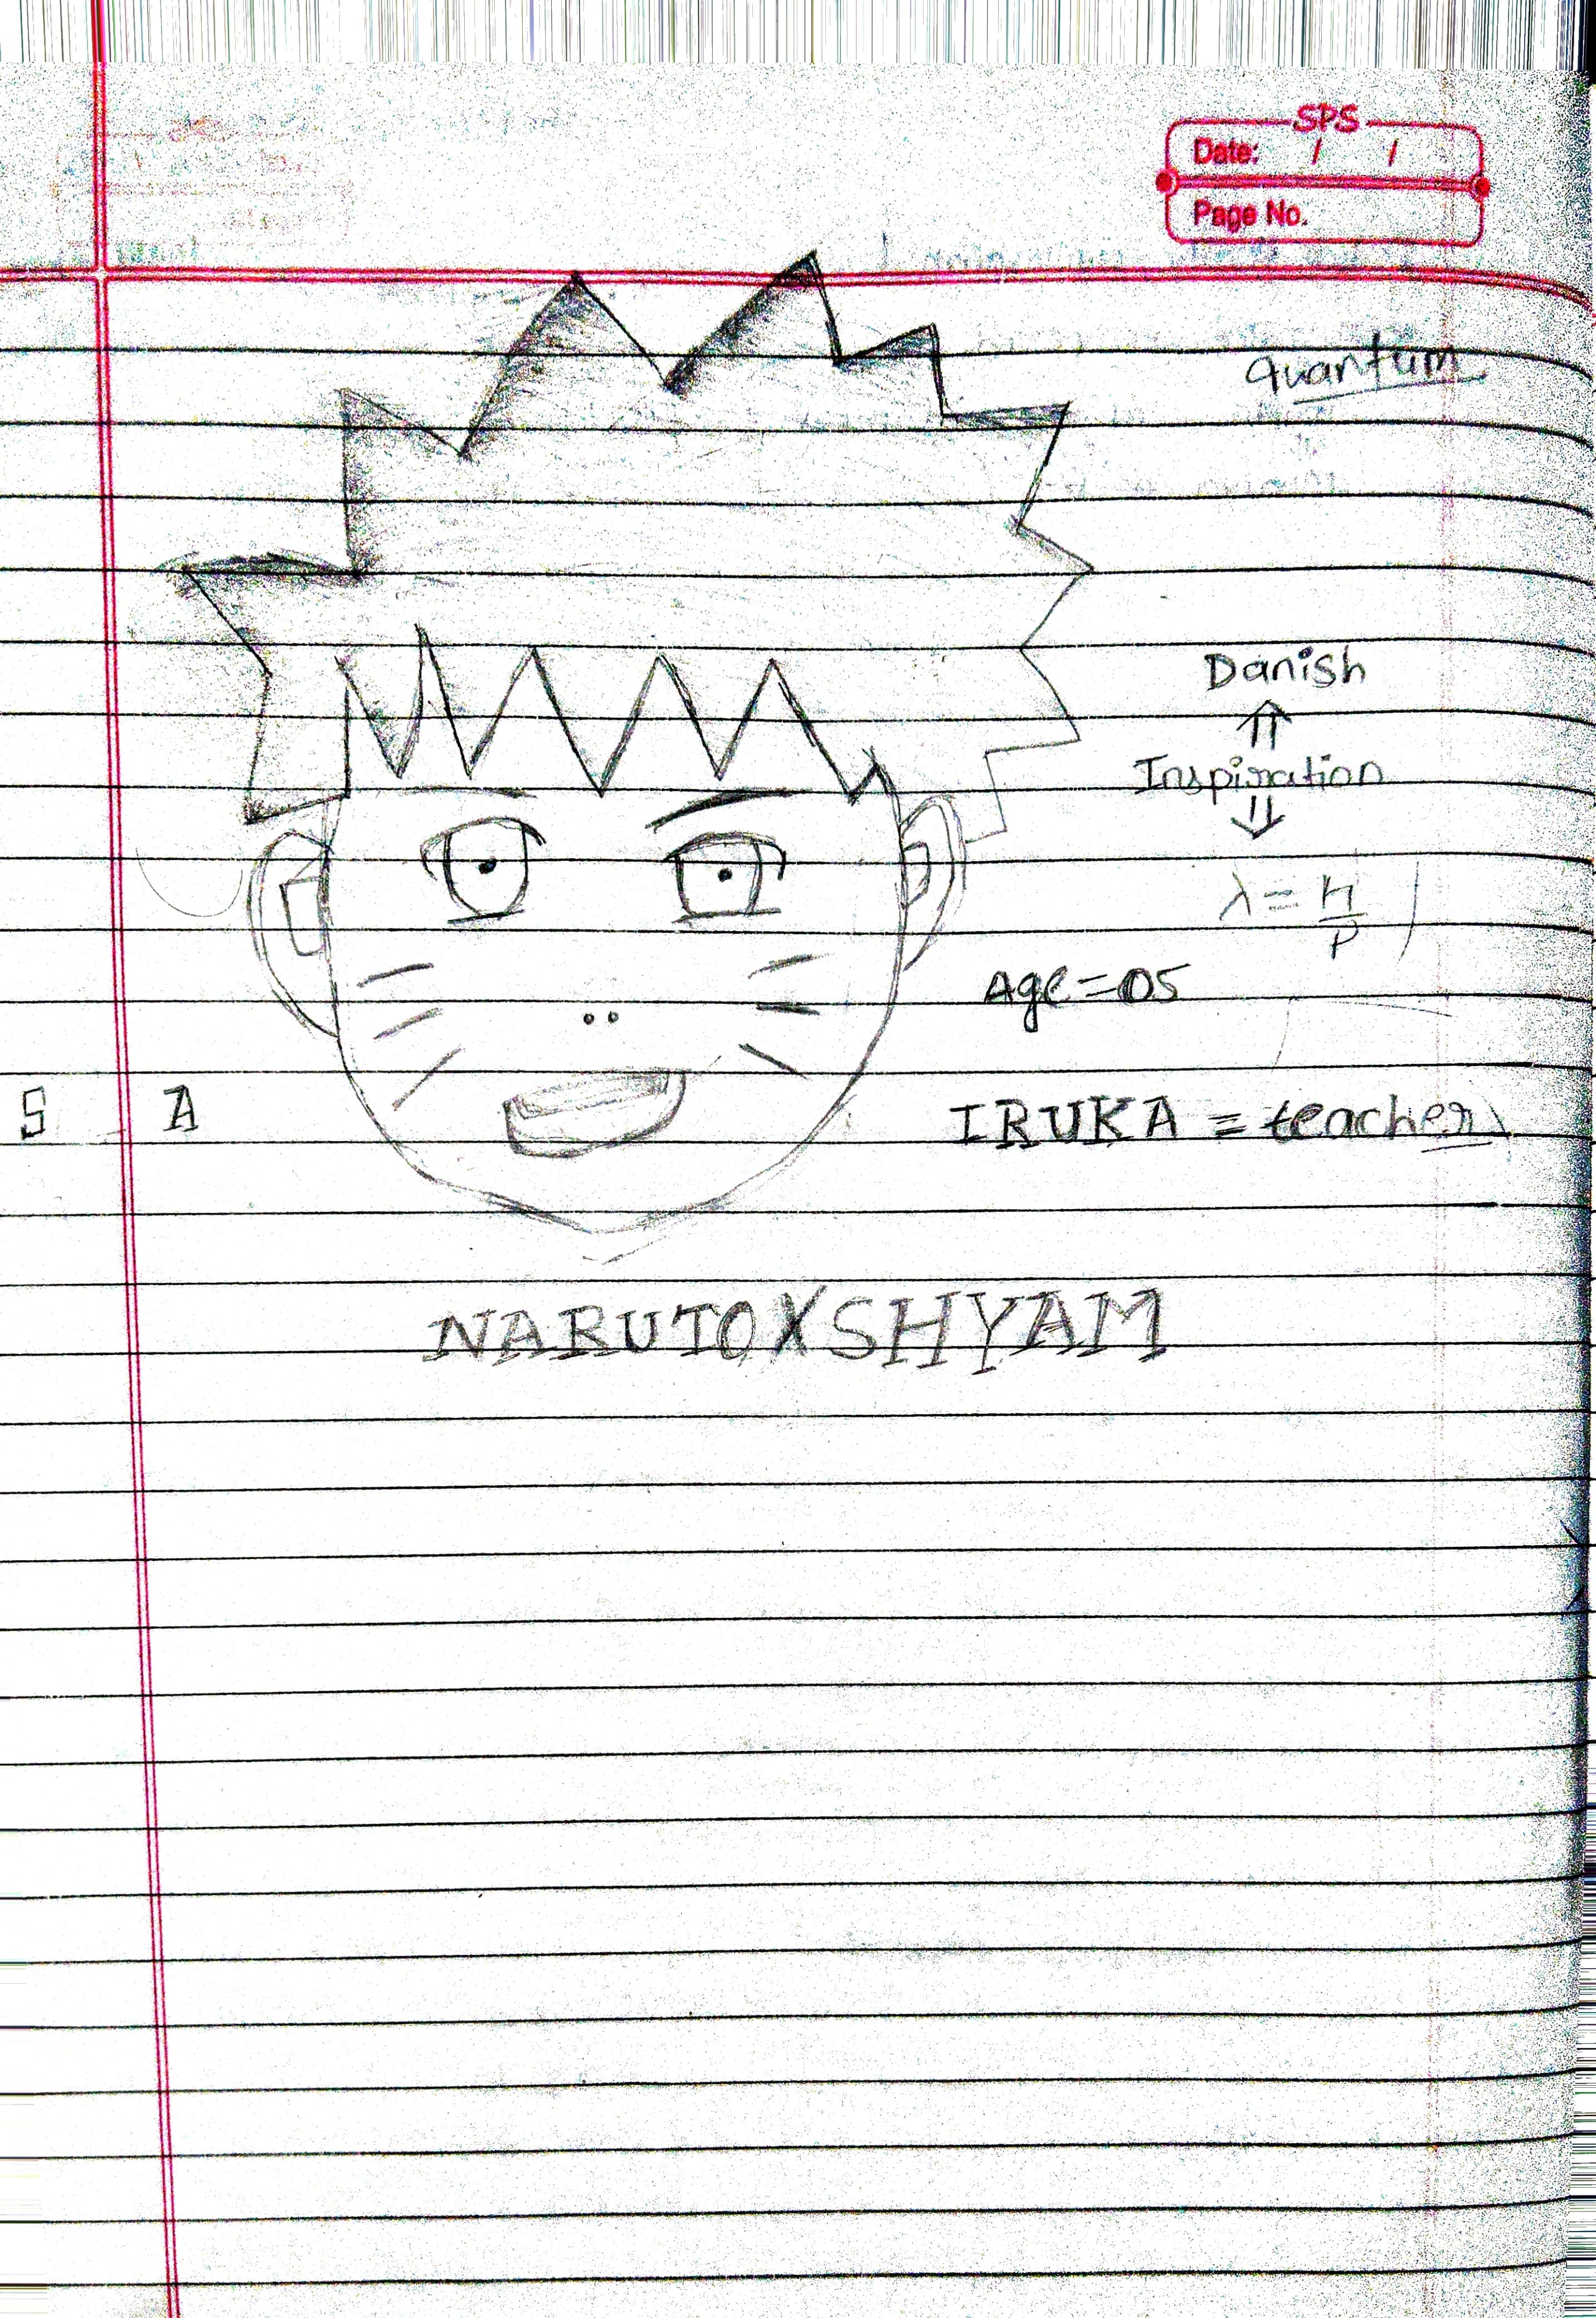 SPS
Date: / /
Page No.
Quantum
Danish
⇑
Inspiration
⇓
λ = h/p
Age = 05
S A
IRUKA = teacher
NARUTO X SHYAM